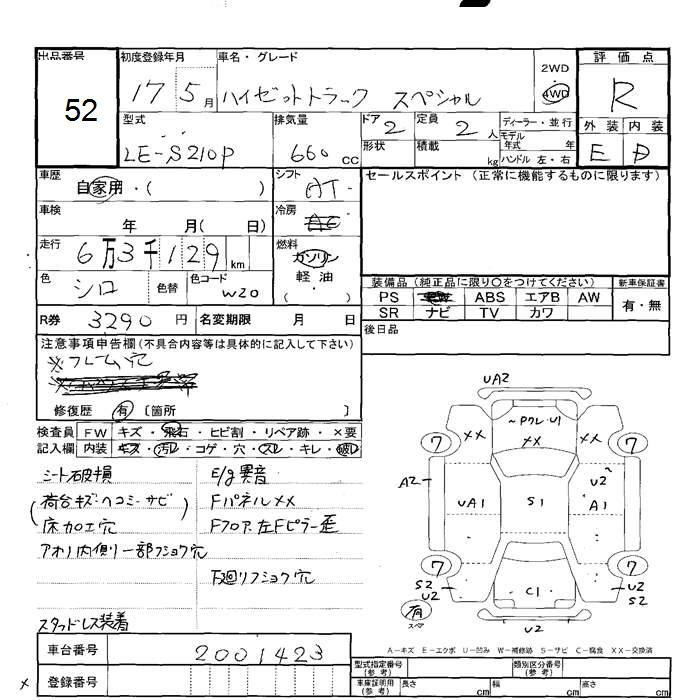 出品番号 初度登録年月 車名・グレード 2WD 評価点
52 17 5月 ハイゼットトラック スペシャル 4WD R
型式 排気量 ドア 2 定員 2人 ディーラー・並行 外装 内装
LE-S210P 660cc 形状 積載 kg モデル年式 年 ハンドル 左・右 E D
車歴 自家用・( ) シフト AT セールスポイント (正常に機能するものに限ります)
車検 年 月( 日) 冷房
走行 6万3千129km 燃料 ガソリン
色 シロ 色替 色コード W20 軽油 ( )
装備品 (純正品に限り○をつけてください) 新車保証書
PS ABS エアB AW 有・無
SR ナビ TV カワ
R券 3290円 名変期限 月 日 後日品
注意事項申告欄(不具合内容等は具体的に記入して下さい)
※フレーム穴
修復歴 有 〔箇所 〕
検査員 FW キズ・飛石・ヒビ割・リペア跡・×要
記入欄 内装 キズ・汚レ・コゲ・穴・スレ・キレ・破レ
シート破損 E/g異音
(荷台キズ・ヘコミ・サビ) Fパネルメメ
床加工穴 Fフロア左Fピラー歪
アオリ内側リ一部フショク穴
下廻リフショク穴
スタッドレス装着
UA2
〜Pクレ・U1
×× ×× ××
7 7
A2 UA1 S1 U2 A1
7 7
S2 U2 C1 U2 S2
有 スペア U2
A-キズ E-エクボ U-凹み W-補修跡 S-サビ C-腐食 XX-交換済
車台番号 2001423 型式指定番号(参考) 類別区分番号(参考)
× 登録番号 車庫証明用(参考) 長さ cm 幅 cm 高さ cm